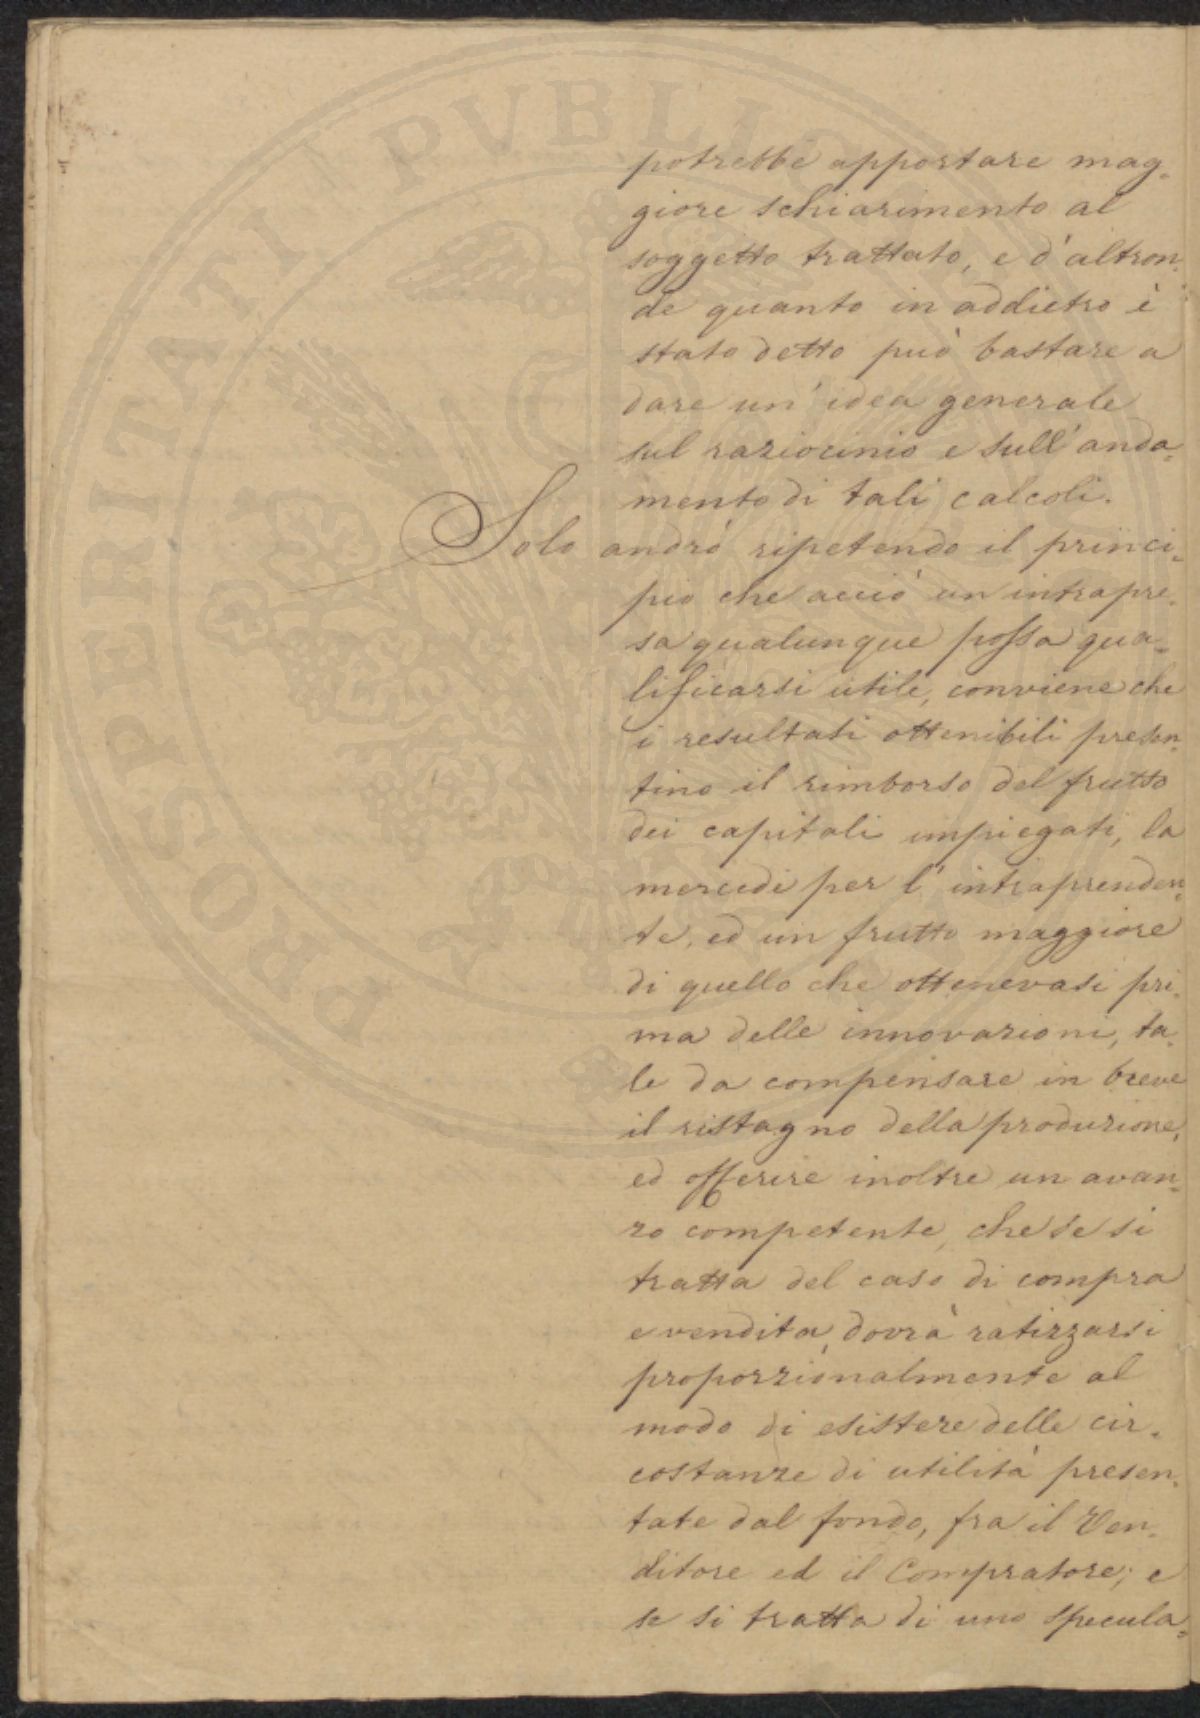 potrebbe apportare mag=
giore schiarimento al
soggetto trattato, e d'altron=
de quanto in addietro è
stato detto può bastare a
dare un' idea generale
sul raziocinio e sull' anda=
mento di tali calcoli.
Solo andrò ripetendo il princi=
pio che acciò un intrapre=
sa qualunque possa qua=
lificarsi utile, conviene che
i resultati ottenibili presen=
tino il rimborso del frutto
dei capitali impiegati, la
mercede per l' intraprenden=
te, ed un frutto maggiore
di quello che ottenevasi pri=
ma delle innovazioni, ta=
le da compensare in breve
il ristagno della produzione,
ed offerire inoltre un avan=
zo competente, che se si
tratta del caso di compra
e vendita, dovrà ratizzarsi
proporzionalmente al
modo di esistere delle cir=
costanze di utilità presen=
tate dal fondo, fra il Ven=
ditore ed il Compratore; e
se si tratta di uno specula=
PROSPERITATI PVBLICAE